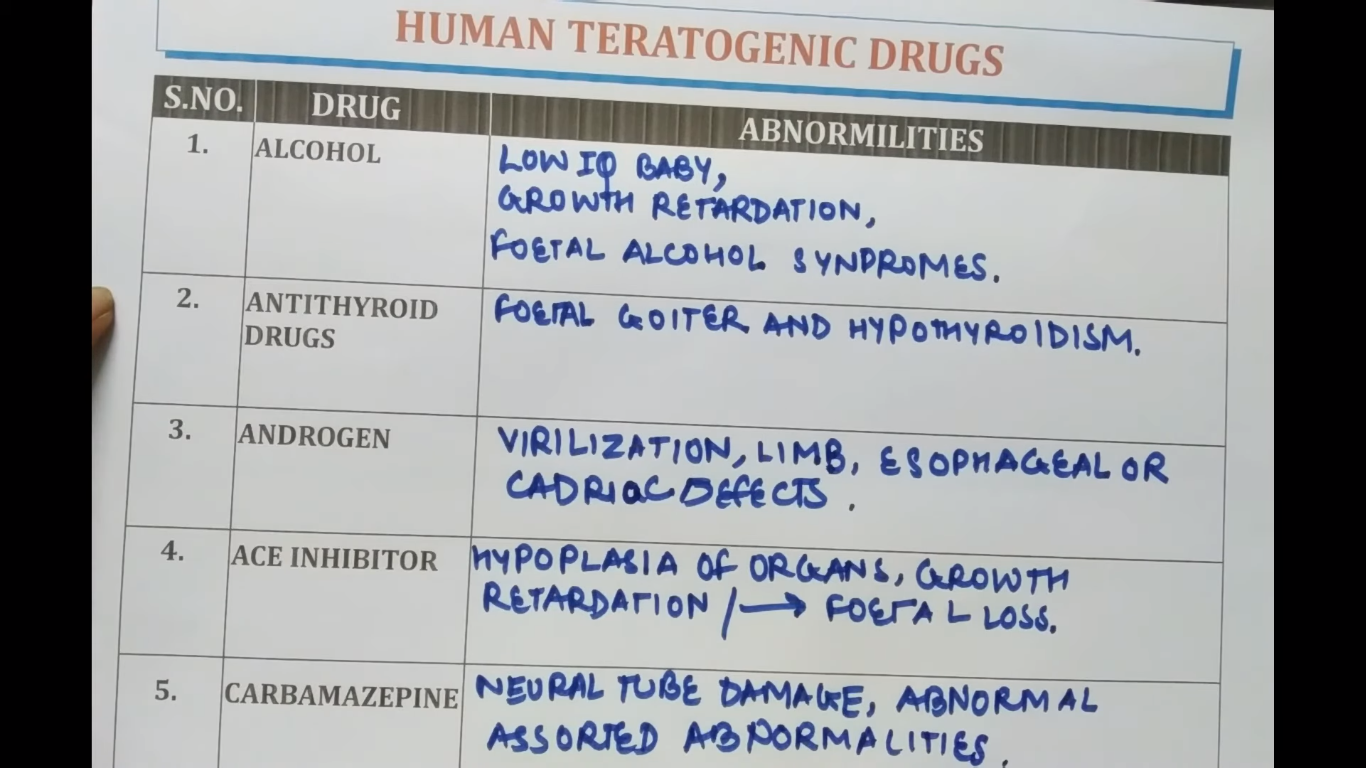 HUMAN TERATOGENIC DRUGS
S.NO. DRUG ABNORMILITIES
1. ALCOHOL LOW IQ BABY,
GROWTH RETARDATION,
FOETAL ALCOHOL SYNDROMES.
2. ANTITHYROID FOETAL GOITER AND HYPOTHYROIDISM.
DRUGS
3. ANDROGEN VIRILIZATION, LIMB, ESOPHAGEAL OR
CADRIAC DEFECTS.
4. ACE INHIBITOR HYPOPLASIA OF ORGANS, GROWTH
RETARDATION / → FOETAL LOSS.
5. CARBAMAZEPINE NEURAL TUBE DAMAGE, ABNORMAL
ASSORTED ABNORMALITIES.